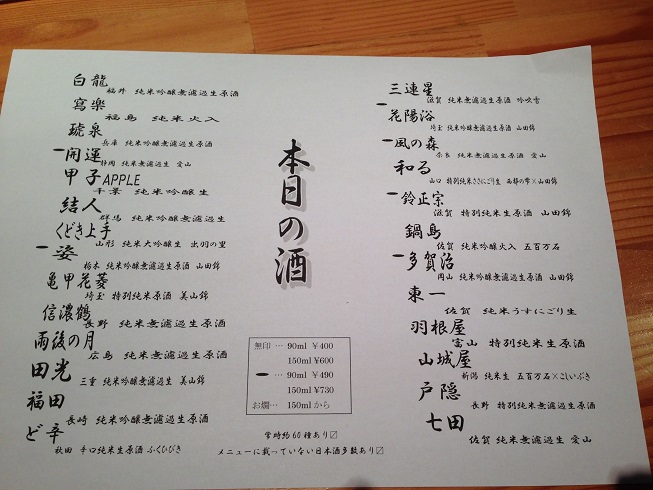 本日の酒
白龍
福井 純米吟醸無濾過生原酒
寫樂
福島 純米火入
琥泉
兵庫 純米吟醸無濾過生原酒
開運
静岡 純米無濾過生 愛山
甲子APPLE
千葉 純米吟醸生
結人
群馬 純米吟醸無濾過生
くどき上手
山形 純米大吟醸生 出羽の里
姿
栃木 純米吟醸無濾過生原酒 山田錦
亀甲花菱
埼玉 特別純米原酒 美山錦
信濃鶴
長野 純米無濾過生原酒
雨後の月
広島 純米無濾過生原酒
田光
三重 純米吟醸無濾過生 美山錦
福田
長崎 純米吟醸無濾過生原酒
ど辛
秋田 辛口純米生原酒 ふくひびき
三連星
滋賀 純米無濾過生原酒 吟吹雪
花陽浴
埼玉 純米無濾過生原酒 山田錦
風の森
奈良 純米無濾過生原酒
和る
山口 特別純米ささにごり生 西都の雫×山田錦
鈴正宗
滋賀 特別純米生原酒 山田錦
鍋島
佐賀 純米吟醸火入 五百万石
多賀治
岡山 純米吟醸無濾過生原酒 山田錦
東一
佐賀 純米うすにごり生
羽根屋
富山 特別純米生原酒
山城屋
新潟 純米生 五百万石×こしいぶき
戸隠
長野 特別純米無濾過生原酒
七田
佐賀 純米無濾過生 愛山
無印 … 90ml ¥400
150ml ¥600
… 90ml ¥490
150ml ¥730
お燗… 150mlから
常時約60種あり〼
メニューに載っていない日本酒多数あり〼